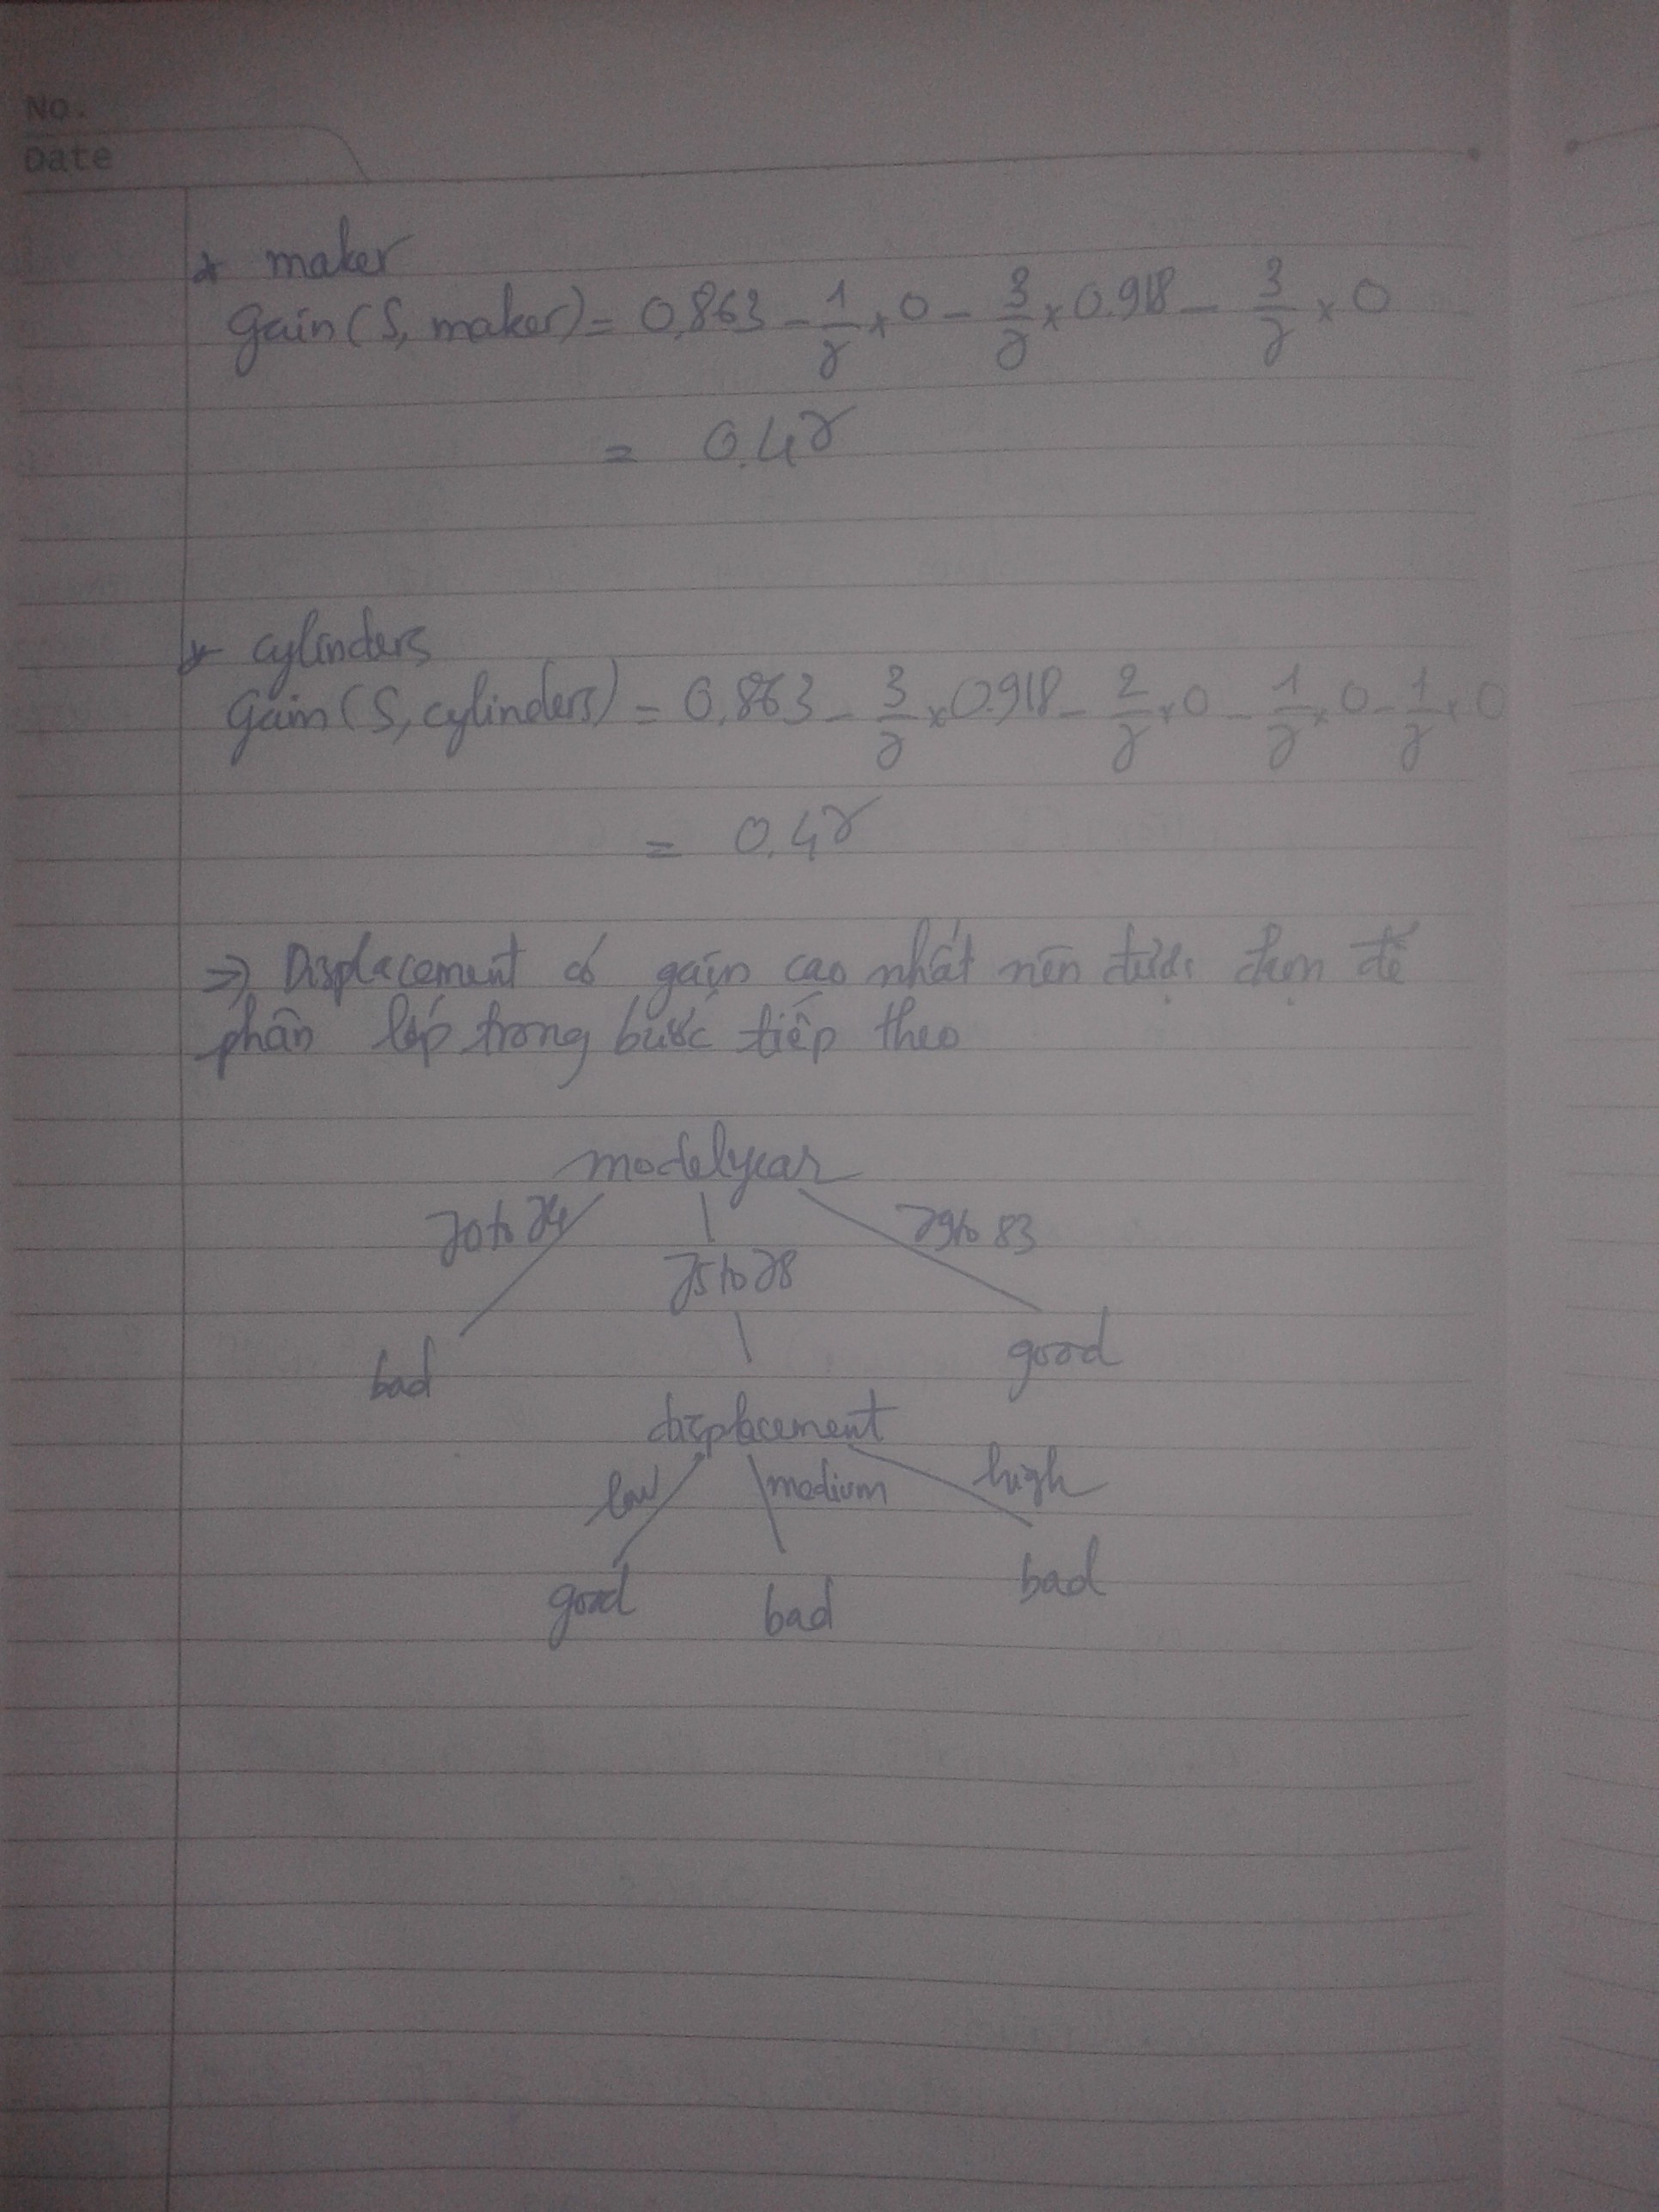 No.
Date
* maker
Gain(S, maker) = 0.863 - 1/7 x 0 - 3/7 x 0.918 - 3/7 x 0
= 0.47
* cylinders
Gain(S, cylinders) = 0.863 - 3/7 x 0.918 - 2/7 x 0 - 1/7 x 0 - 1/7 x 0
= 0.47
=> Displacement có gain cao nhất nên được chọn để
phân lớp trong bước tiếp theo
modelyear
70 to 74
75 to 78
79 to 83
bad
good
displacement
low
medium
high
good
bad
bad